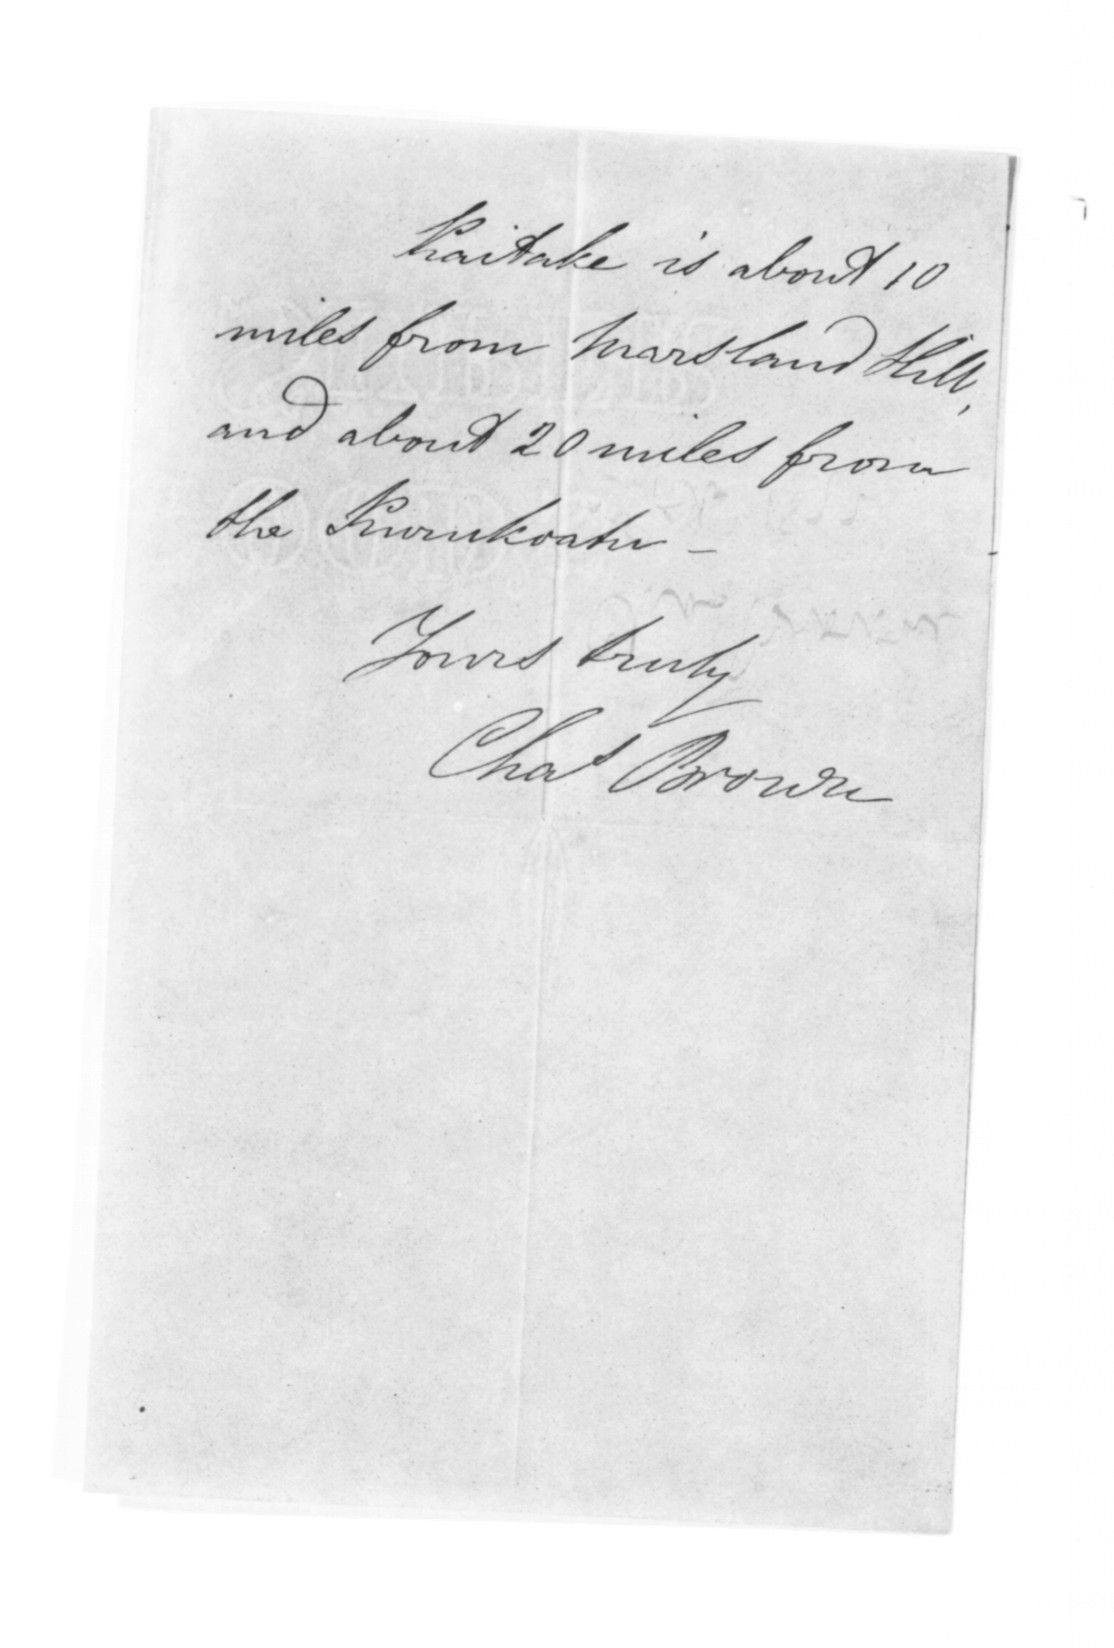 Kaitake is about 10
miles from Marsland Hill,
and about 20 miles from
the Kurukoatu –
Yours truly
Chas Brown